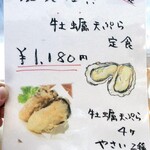 牡蠣天ぷら
定食
¥1,180円
牡蠣天ぷら
4ヶ
やさい2種